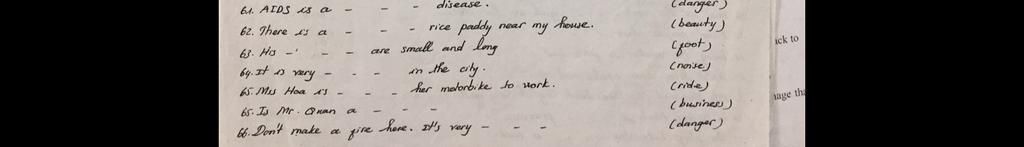 61. AIDS is a - - - disease. (danger)
62. There is a - - - rice paddy near my house. (beauty)
63. His - - - are small and long (foot)
64. It is very - - - in the city. (noise)
65. Mrs Hoa is - - - her motorbike to work. (ride)
65. Is Mr. Quan a - - - (business)
66. Don't make a fire here. It's very - - - (danger)
ick to